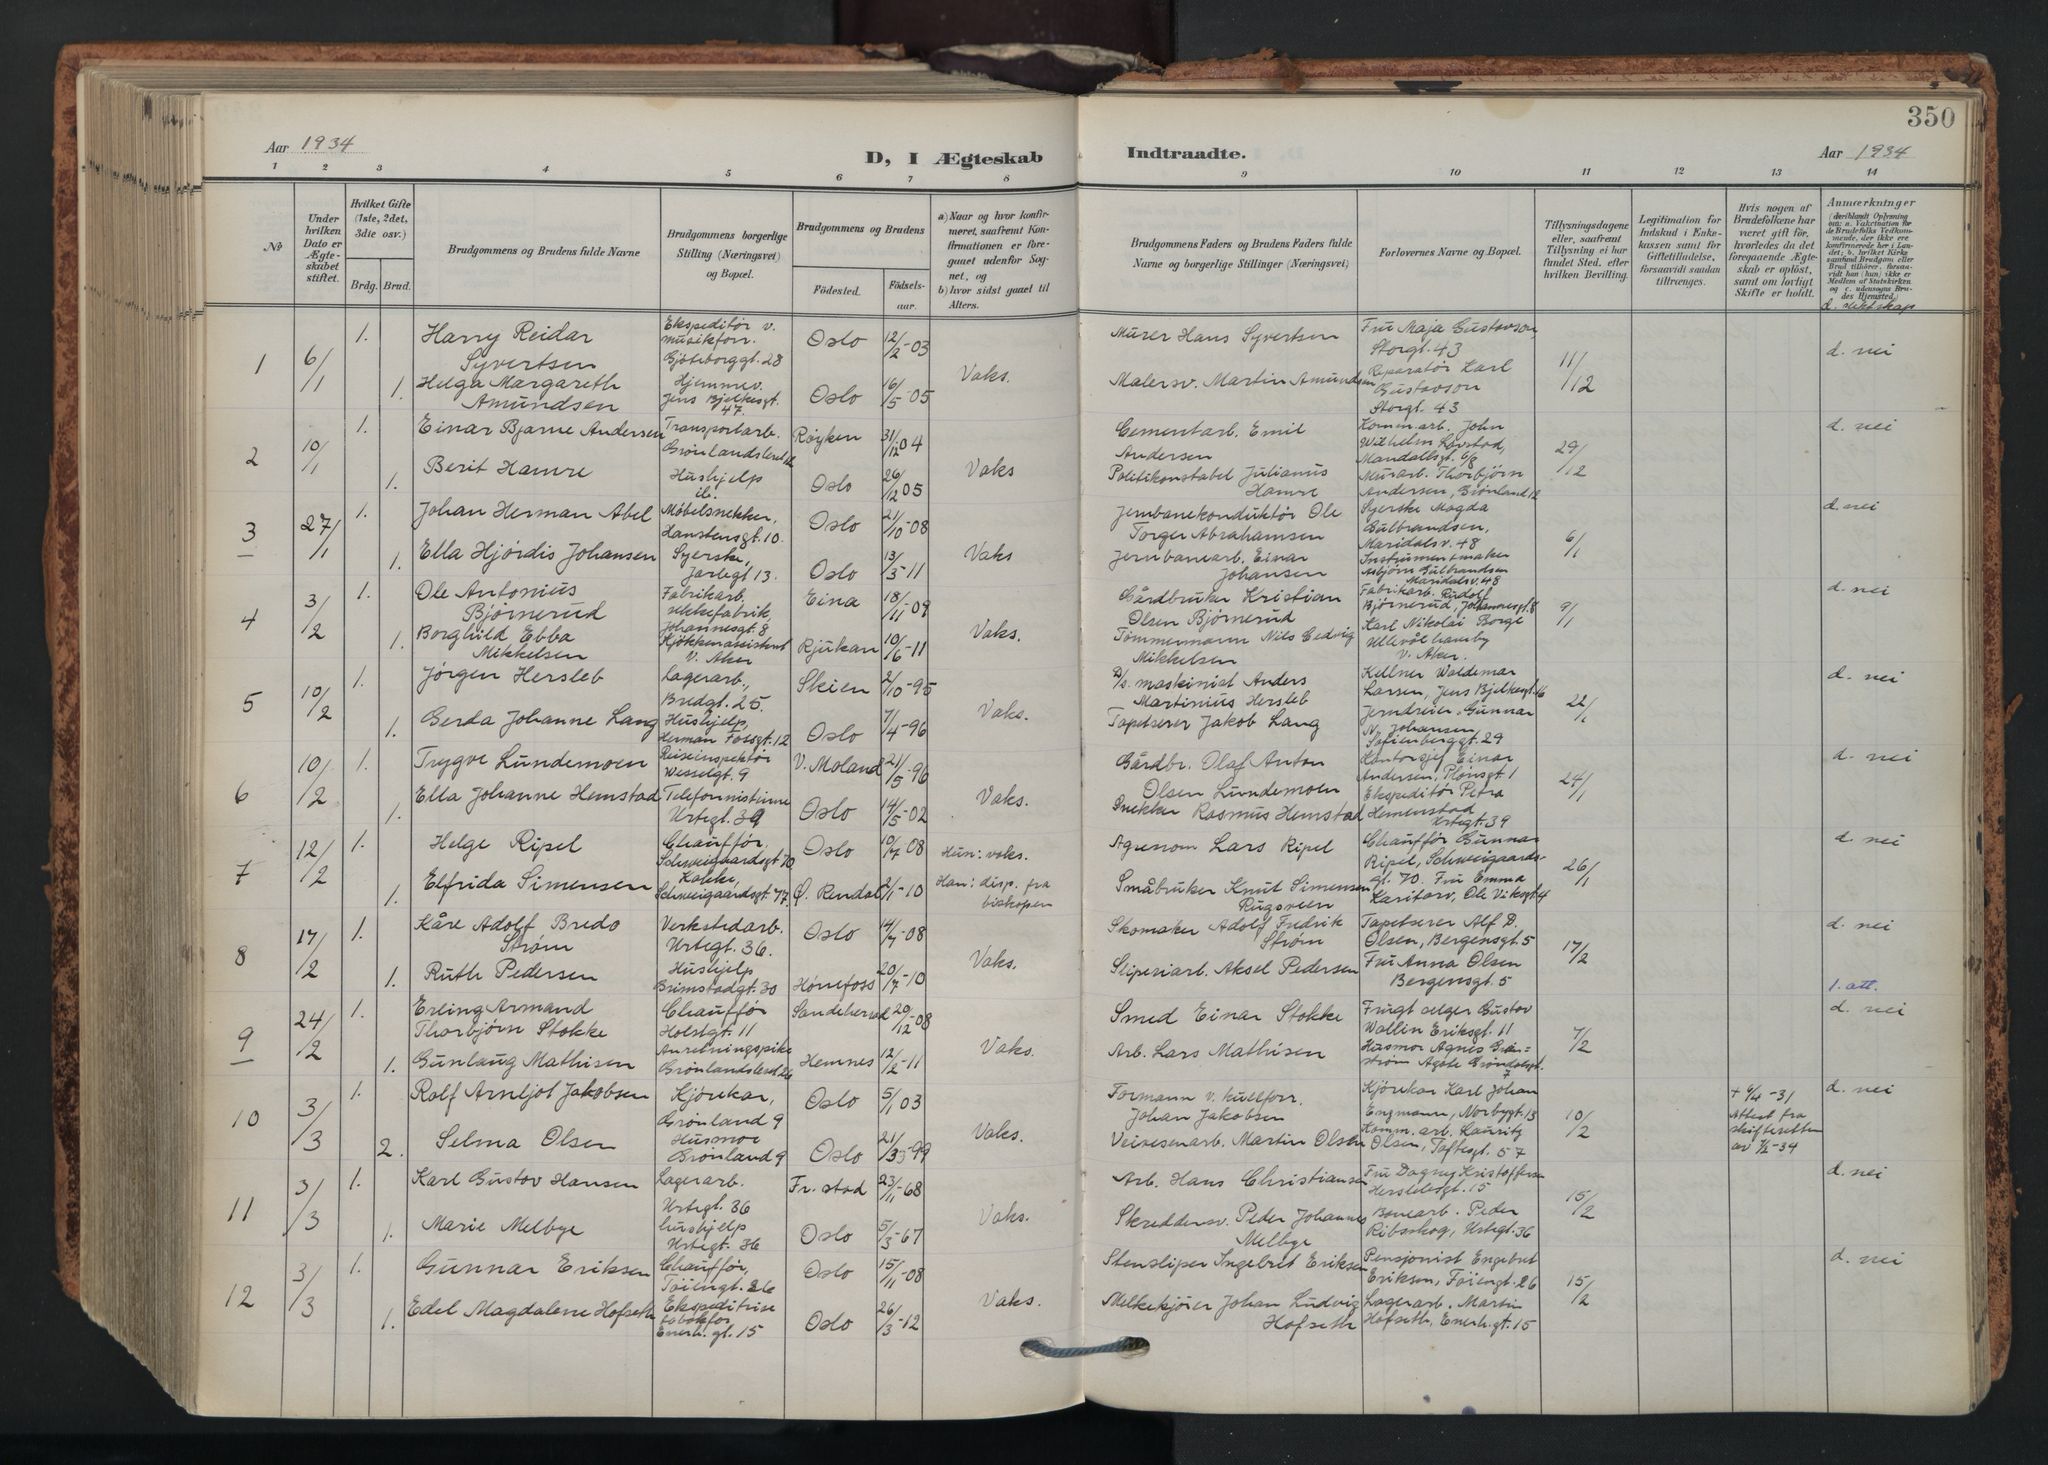 350
Aar 1934
D, I Ægteskab
Indtraadte.
Aar 1934
1 2 3 4 5 6 7 8 9 10 11 12 13 14
No
Under hvilken Dato er Ægteskabet stiftet.
Hvilket Gifte (1ste, 2det, 3die osv.)
Brdg. Brud.
Brudgommens og Brudens fulde Navne
Brudgommens borgerlige Stilling (Næringsvei) og Bopæl.
Brudgommens og Brudens
Födested. Födselsaar.
a) Naar og hvor konfirmeret, saafremt Konfirmationen er foregaaet udenfor Sognet, og
b) hvor sidst gaaet til Alters.
Brudgommens Faders og Brudens Faders fulde Navne og borgerlige Stillinger (Næringsvei)
Forlovernes Navne og Bopæl.
Tillysningsdagene eller, saafremt Tillysning ei har fundet Sted, efter hvilken Bevilling.
Legitimation for Indskud i Enkekassen samt for Giftetilladelse, forsaavidt saadan tiltrænges.
Hvis nogen af Brudefolkene har været gift för, hvorledes da det foregaaende Ægteskab er oplöst, samt om lovligt Skifte er holdt.
Anmærkninger
d. slektskap
1 6/1 1. Harry Reidar Syvertsen
Ekspeditør v. musikforr. Gjøteborggt. 28
Oslo 12/2-03
Vaks.
Murer Hans Syvertsen
Fru Maja Gustavson, Storgt. 43
11/12
d. nei
1. Helga Margareth Amundsen
Hjemmev. Jens Bjelkesgt. 47.
Oslo 16/5-05
Malersv. Martin Amundsen
Reparatør Karl Gustavson Storgt. 43
2 10/1 1. Einar Bjarne Andersen
Transportarb. Grønlandsleret 12
Røyken 31/12 04
Vaks
Cementarb. Emil Andersen
Komm. arb. John Wilhelm Løvstad, Mandallsgt. 6/8
29/12
d. nei
1. Berit Hamre
Hushjelp ib.
Oslo 26/12 05
Politikonstabel Julianus Hamre
Murarb. Thorbjørn Andersen, Grønland 12
3 27/1 1. Johan Herman Abel
Møbelsnekker, Hanstensgt. 10.
Oslo 21/10-08
Vaks
Jernbanekonduktør Ole Torger Abrahamsen
Syerske Magda Gulbrandsen, Maridalsv. 48
6/1
d. nei
1. Ella Hjørdis Johansen
Syerske, Jarlegt 13.
Oslo 13/3-11
Jernbanearb. Einar Johansen
Instrumentmaker Asbjørn Gulbrandsen Maridalsv. 48
4 3/2 1. Ole Antonius Bjørnerud
Fabrikarb. Johannesgt. 8
Eina 18/11-09
Vaks.
Gårdbruker Kristian Olsen Bjørnerud
Fabrikarb. Rudolf Bjørnerud, Johannesgt. 8
9/1
d. nei
1. Borghild Ebba Mikkelsen
Kjøkkenassistent V. Aker
Rjukan 10/6-11
Tømmermann Nils Mikkelsen
Karl Nikolai Borge Ullevål haveby V. Aker.
5 10/2 1. Jørgen Hersleb
Lagerarb., Bredgt. 25.
Skien 2/10-95
Vaks.
D/s. maskinist Anders Martinius Hersleb
Kellner Waldemar Larsen, Jens Bjelkesgt. 16
22/1
d. nei
1. Gerda Johanne Lang
Hushjelp, Herman Fossgt. 12
Oslo 7/4-96
Tapetserer Jakob Lang
Jerndreier Gunnar N. Johansen Sofienberggt. 29
6 10/2 1. Trygve Lundemoen
Reiseinspektør Wesselgt. 9
V. Moland 21/5-96
Vaks.
Gårdbr. Olaf Anton Olsen Lundemoen
Kontorsjef Einar Andersen, Pløensgt. 1
24/1
d. nei
1. Ella Johanne Hemstad
Telefonistinne Urtegt. 39
Oslo 14/5-02
Snekker Rasmus Hemstad
Ekspeditør Petra Hemenstad Urtegt. 39
7 12/2 1. Helge Ripel
Chauffør, Schweigaardsgt 70
Oslo 10/7 08
Hun: vaks.
Agronom Lars Ripel
Chauffør Gunnar Ripel, Schweigaardsgt. 70.
26/1
d. nei
1. Elfrida Simensen
Kokke, Schweigaardsgt. 77.
Ø. Rendal 2/1-10
Han: disp. fra biskopen
Småbruker Knut Simensen Rugsveen
Fru Emma Karitorv, Ole Viksgt. 4
8 17/2 1. Kåre Adolf Bredo Strøm
Verkstedarb. Urtegt. 36.
Oslo 14/7-08
Vaks.
Skomaker Adolf Fredrik Strøm
Tapetserer Alf D. Olsen, Bergensgt. 5
17/2
d. nei
1. Ruth Pedersen
Hushjelp Grimstadgt. 30
Hønefoss 20/7-10
Sliperiarb. Aksel Pedersen
Fru Anna Olsen Bergensgt. 5
1. att.
9 24/2 1. Erling Armand Thorbjørn Stokke
Chauffør Holstgt. 11
Sandeherred 20/12-08
Vaks.
Smed Einar Stokke
Frugt selger Gustov Wallin Eriksgt. 11
7/2
d. nei
1. Gunlaug Mathisen
Anretningspike Grønlandsleret 26
Hemnes 12/2-11
Arb. Lars Mathisen
Husmor Agnes Granstrøm Agate Grøndalsgt. 7
10 3/3 1. Rolf Arnljot Jakobsen
Kjørekar, Grønland 9
Oslo 5/1 03
Vaks.
Formann v. kullforr. Johan Jakobsen
Kjørekar Karl Johan Engmann, Norbygt. 13
10/2
+ 6/4-31 Attest fra skifteretten av 7/2-34
d. nei
2. Selma Olsen
Husmor Grønland 9
Oslo 21/3-99
Veivesenarb. Martin Olsen
Komm. arb. Lauritz Olsen, Toftesgt. 57
11 3/3 1. Karl Gustov Hansen
Lagerarb. Urtegt. 36
Fr. stad 23/11-68
Vaks.
Arb. Hans Christiansen
Fru Dagny Kristoffersen Herslebsgt. 15
15/2
d. nei
1. Marie Melbye
hushjelp Urtegt. 36
Oslo 5/3-67
Skreddersv. Peder Johannes Melbye
Bonearb. Peder Ribsskog, Urtegt. 36
12 3/3 1. Gunnar Eriksen
Chauffør, Tøiengt. 26
Oslo 15/11-08
Vaks.
Stensliper Ingebret Eriksen
Pensjonist Engebret Eriksen, Tøiengt. 26
15/2
d. nei
1. Edel Magdalene Hofseth
Ekspeditrise tobakfor. Enerh. gt. 15
Oslo 26/3-12
Melkekjører Johan Ludvig Hofseth
Lagerarb. Martin Hofseth, Enerh. gt. 15